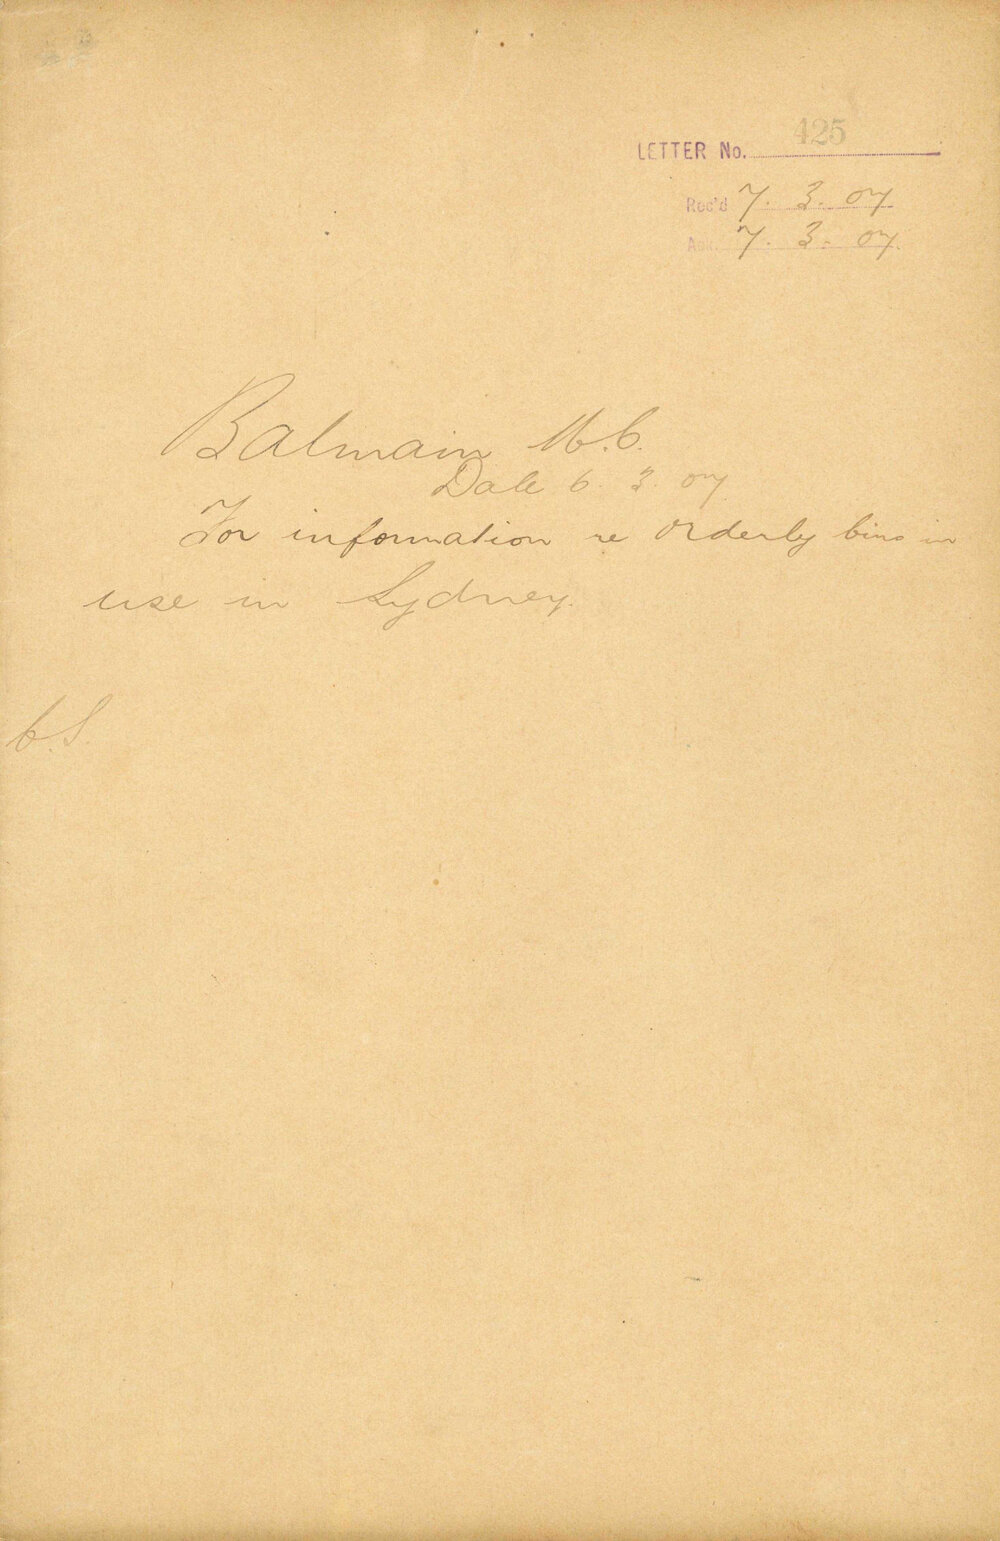 LETTER No. 425
Rec'd 7. 3. 07
7. 3. 07.
Balmain M.C.
Date 6. 3. 07
For information re Orderly bins in
use in Sydney.
C.S.